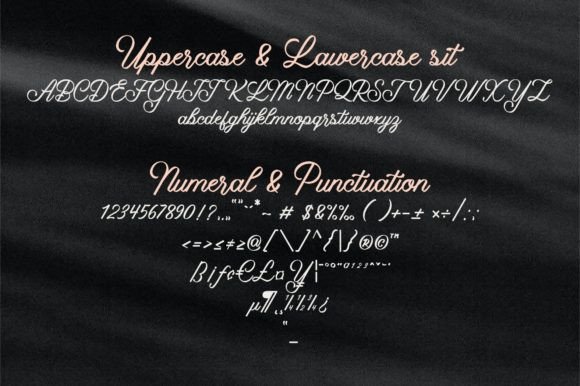 Uppercase & Lawercase sit
ABCDEFGHIJKLMNOPQRSTUVWXYZ
abcdefghijklmnopqrstuvwxyz
Numeral & Punctuation
1234567890!?.,""''*~ # $&%‰ ( )+-± ×÷/
<=>≤≠≥@[/\]^{|}®©™
ßiƒ¢€£¤¥¦
µ¶ ¼½¾¿
"
_